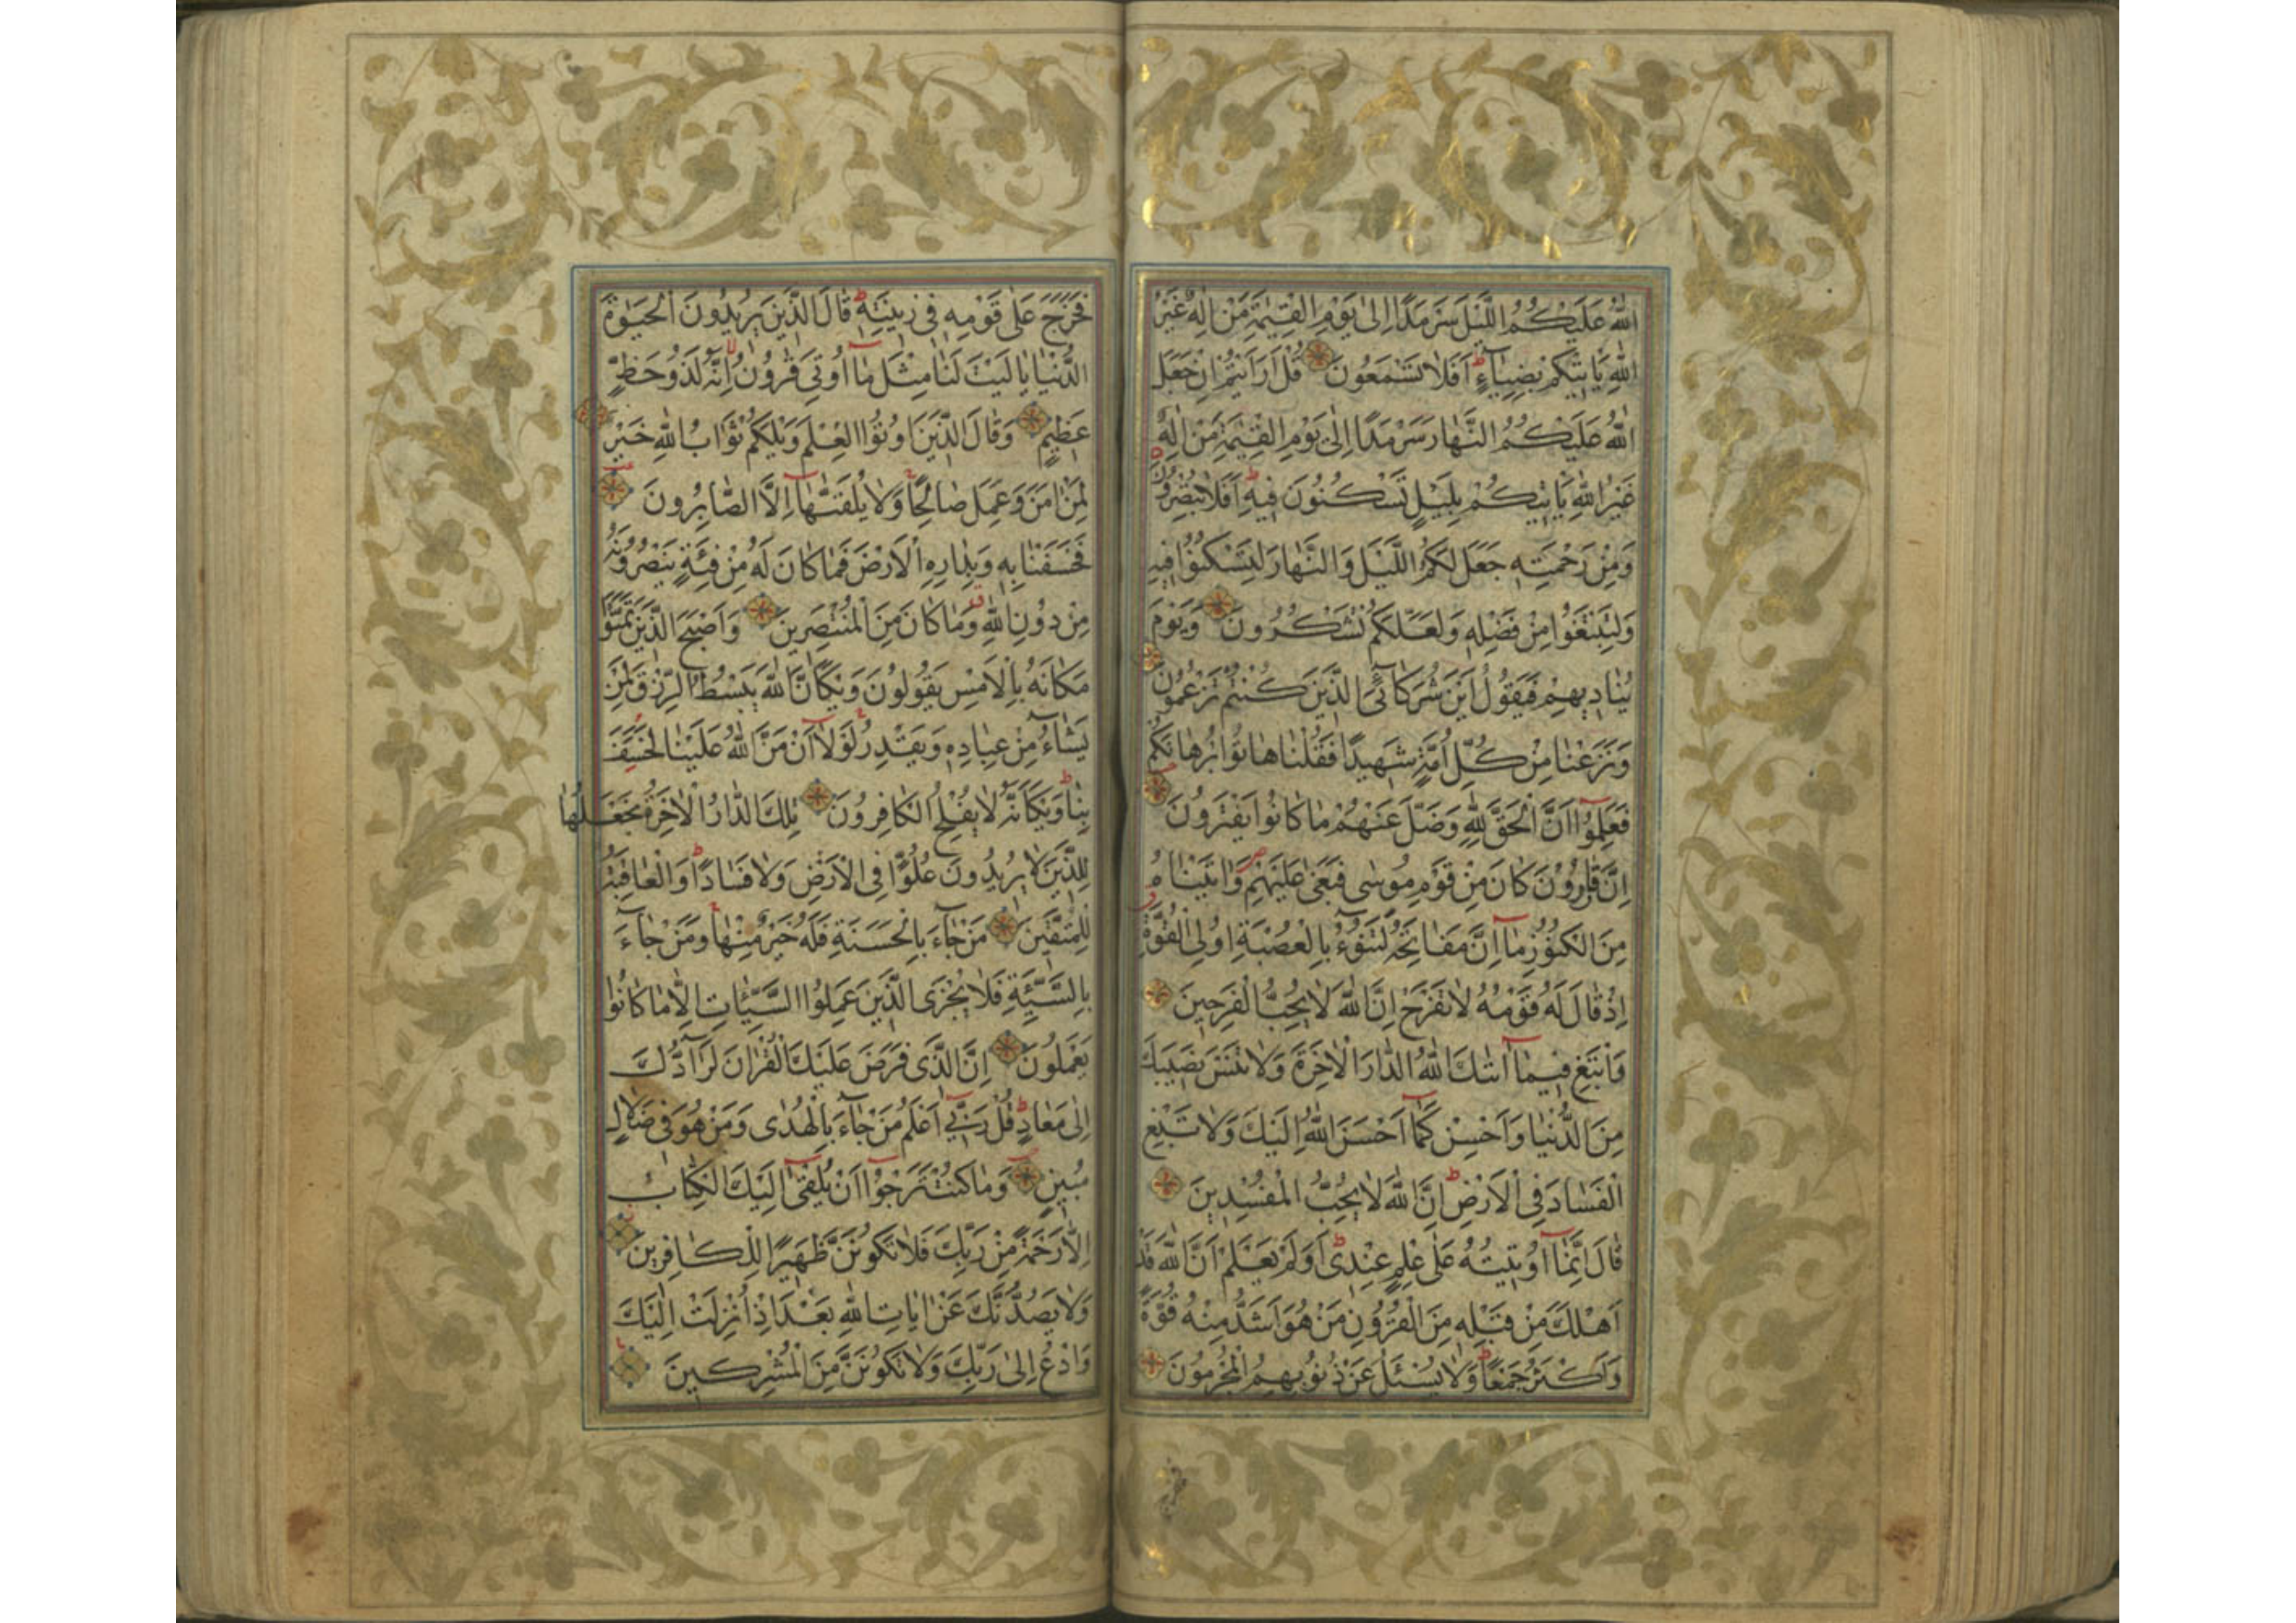 اللهُ عَلَيْكُمُ اللَّيْلَ سَرْمَدًا اِلٰى يَوْمِ الْقِيٰمَةِ مَنْ اِلٰهٌ غَيْرُ
اللهِ يَاْتِيكُمْ بِضِيَاءٍ ط اَفَلَا تَسْمَعُونَ قُلْ اَرَاَيْتُمْ اِنْ جَعَلَ
اللهُ عَلَيْكُمُ النَّهَارَ سَرْمَدًا اِلٰى يَوْمِ الْقِيٰمَةِ مَنْ اِلٰهٌ
غَيْرُ اللهِ يَاْتِيكُمْ بِلَيْلٍ تَسْكُنُونَ فِيهِ ط اَفَلَا تُبْصِرُونَ
وَمِنْ رَحْمَتِهِ جَعَلَ لَكُمُ اللَّيْلَ وَالنَّهَارَ لِتَسْكُنُوا فِيهِ
وَلِتَبْتَغُوا مِنْ فَضْلِهِ وَلَعَلَّكُمْ تَشْكُرُونَ وَيَوْمَ
يُنَادِيهِمْ فَيَقُولُ اَيْنَ شُرَكَائِيَ الَّذِينَ كُنْتُمْ تَزْعُمُونَ
وَنَزَعْنَا مِنْ كُلِّ اُمَّةٍ شَهِيدًا فَقُلْنَا هَاتُوا بُرْهَانَكُمْ
فَعَلِمُوا اَنَّ الْحَقَّ لِلّٰهِ وَضَلَّ عَنْهُمْ مَا كَانُوا يَفْتَرُونَ
اِنَّ قَارُونَ كَانَ مِنْ قَوْمِ مُوسٰى فَبَغٰى عَلَيْهِمْ ص وَاٰتَيْنَاهُ
مِنَ الْكُنُوزِ مَا اِنَّ مَفَاتِحَهُ لَتَنُوءُ بِالْعُصْبَةِ اُولِي الْقُوَّةِ
اِذْ قَالَ لَهُ قَوْمُهُ لَا تَفْرَحْ اِنَّ اللهَ لَا يُحِبُّ الْفَرِحِينَ
وَابْتَغِ فِيمَا اٰتٰكَ اللهُ الدَّارَ الْاٰخِرَةَ وَلَا تَنْسَ نَصِيبَكَ
مِنَ الدُّنْيَا وَاَحْسِنْ كَمَا اَحْسَنَ اللهُ اِلَيْكَ وَلَا تَبْغِ
الْفَسَادَ فِي الْاَرْضِ ط اِنَّ اللهَ لَا يُحِبُّ الْمُفْسِدِينَ
قَالَ اِنَّمَا اُوتِيتُهُ عَلٰى عِلْمٍ عِنْدِي ط اَوَلَمْ يَعْلَمْ اَنَّ اللهَ قَدْ
اَهْلَكَ مِنْ قَبْلِهِ مِنَ الْقُرُونِ مَنْ هُوَ اَشَدُّ مِنْهُ قُوَّةً
وَاَكْثَرُ جَمْعًا ط وَلَا يُسْئَلُ عَنْ ذُنُوبِهِمُ الْمُجْرِمُونَ
فَخَرَجَ عَلٰى قَوْمِهِ فِي زِينَتِهِ ط قَالَ الَّذِينَ يُرِيدُونَ الْحَيٰوةَ
الدُّنْيَا يَا لَيْتَ لَنَا مِثْلَ مَا اُوتِيَ قَارُونُ لا اِنَّهُ لَذُو حَظٍّ
عَظِيمٍ وَقَالَ الَّذِينَ اُوتُوا الْعِلْمَ وَيْلَكُمْ ثَوَابُ اللهِ خَيْرٌ
لِمَنْ اٰمَنَ وَعَمِلَ صَالِحًا ج وَلَا يُلَقّٰهَا اِلَّا الصَّابِرُونَ
فَخَسَفْنَا بِهِ وَبِدَارِهِ الْاَرْضَ فَمَا كَانَ لَهُ مِنْ فِئَةٍ يَنْصُرُونَهُ
مِنْ دُونِ اللهِ ق وَمَا كَانَ مِنَ الْمُنْتَصِرِينَ وَاَصْبَحَ الَّذِينَ تَمَنَّوْا
مَكَانَهُ بِالْاَمْسِ يَقُولُونَ وَيْكَاَنَّ اللهَ يَبْسُطُ الرِّزْقَ لِمَنْ
يَشَاءُ مِنْ عِبَادِهِ وَيَقْدِرُ ج لَوْلَا اَنْ مَنَّ اللهُ عَلَيْنَا لَخَسَفَ
بِنَا ط وَيْكَاَنَّهُ لَا يُفْلِحُ الْكَافِرُونَ تِلْكَ الدَّارُ الْاٰخِرَةُ نَجْعَلُهَا
لِلَّذِينَ لَا يُرِيدُونَ عُلُوًّا فِي الْاَرْضِ وَلَا فَسَادًا ط وَالْعَاقِبَةُ
لِلْمُتَّقِينَ مَنْ جَاءَ بِالْحَسَنَةِ فَلَهُ خَيْرٌ مِنْهَا ج وَمَنْ جَاءَ
بِالسَّيِّئَةِ فَلَا يُجْزَى الَّذِينَ عَمِلُوا السَّيِّئَاتِ اِلَّا مَا كَانُوا
يَعْمَلُونَ اِنَّ الَّذِي فَرَضَ عَلَيْكَ الْقُرْاٰنَ لَرَادُّكَ
اِلٰى مَعَادٍ ط قُلْ رَبِّي اَعْلَمُ مَنْ جَاءَ بِالْهُدٰى وَمَنْ هُوَ فِي ضَلَالٍ
مُبِينٍ وَمَا كُنْتَ تَرْجُوا اَنْ يُلْقٰى اِلَيْكَ الْكِتَابُ
اِلَّا رَحْمَةً مِنْ رَبِّكَ فَلَا تَكُونَنَّ ظَهِيرًا لِلْكَافِرِينَ
وَلَا يَصُدُّنَّكَ عَنْ اٰيَاتِ اللهِ بَعْدَ اِذْ اُنْزِلَتْ اِلَيْكَ
وَادْعُ اِلٰى رَبِّكَ وَلَا تَكُونَنَّ مِنَ الْمُشْرِكِينَ